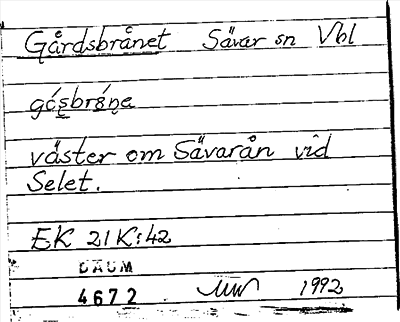 Gårdsbrånet Sävar sn Vbl
väster om Sävarån vid
Selet.
EK 21K:42
DAUM
4672 1992